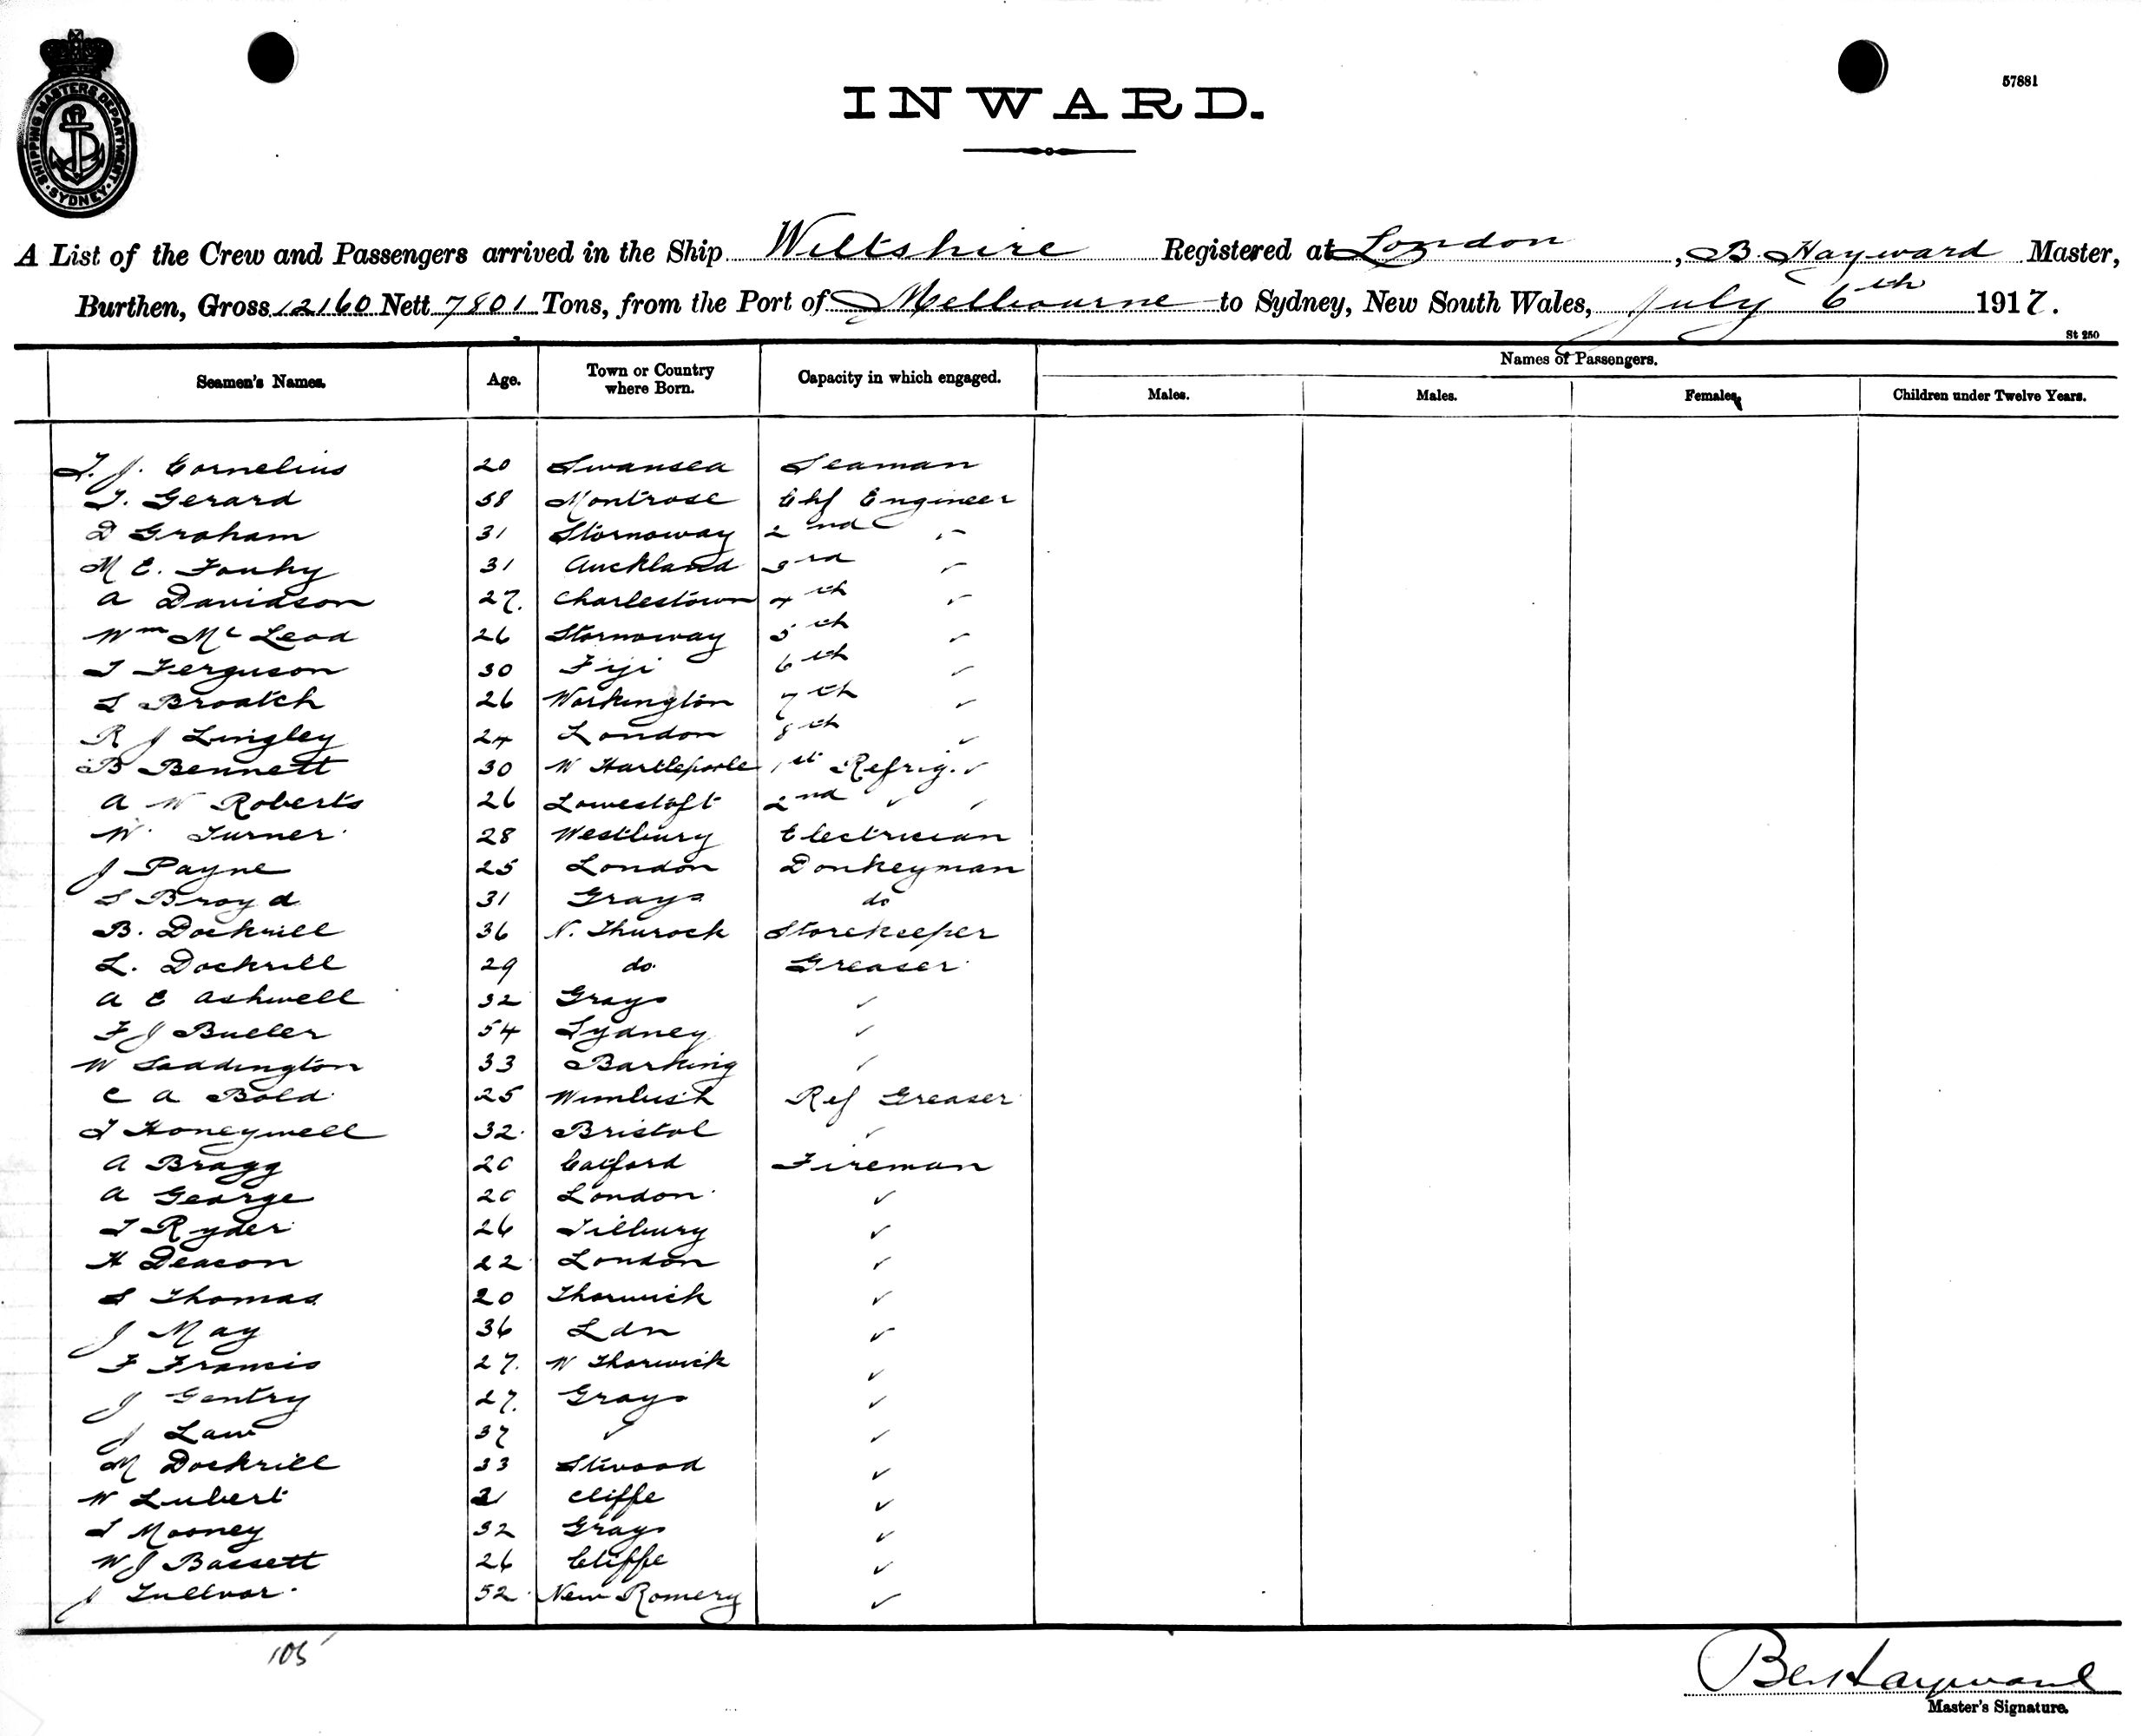 SHIPPING MASTERS DEPARTMENT · SYDNEY ·
57881
INWARD.
A List of the Crew and Passengers arrived in the Ship Wiltshire Registered at London, B. Hayward Master,
Burthen, Gross 12160 Nett 7801 Tons, from the Port of Melbourne to Sydney, New South Wales, July 6th 1917.
St 250
Seamen's Names. Age. Town or Country where Born. Capacity in which engaged. Names of Passengers.
Males. Males. Females. Children under Twelve Years.
T. J. Cornelius 20 Swansea Seaman
T. Gerard 58 Montrose Chf Engineer
D Graham 31 Stornoway 2nd "
M E. Fouhy 31 Auckland 3rd "
A Davidson 27. Charlestown 4th "
Wm Mc Leod 26 Stornoway 5th "
T Ferguson 30 Fiji 6th "
L Broatch 26 Workington 7th "
R J Lingley 24 London 8th "
B Bennett 30 W Hartlepoole 1st Refrig. "
A W Roberts 26 Lowestoft 2nd " "
W. Turner 28 Westbury Electrician
J Payne 25 London Donkeyman
S Broyd 31 Grays do
B. Dockrill 36 N. Thurock Storekeeper
L. Dockrill 29 do. Greaser
A E Ashwell 32 Grays "
F J Butler 54 Sydney "
W Saddington 33 Barking "
C A Bold 25 Wimbush Ref Greaser
T Honeywell 32 Bristol "
A Bragg 20 Catford Fireman
A George 20 London "
T Ryder 26 Tilbury "
H Deacon 22 London "
S Thomas 20 Thorwick "
J May 36 Ldn "
F Francis 27. W Thorwick "
J Gentry 27. Grays "
J Law 37 " "
M Dockrill 33 Stwood "
W Lubert 21 Cliffe "
T Mooney 32 Grays "
W J Bassett 26 Cliffe "
J 52 New Romery "
105
Ben Hayward
Master's Signature.